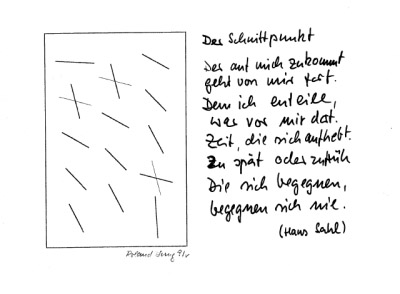 Der Schnittpunkt
Der auf mich zukommt
geht von mir fort.
Dem ich enteile,
war vor mir dort.
Zeit, die sich aufhebt.
Zu spät oder zu früh
Die sich begegnen,
begegnen sich nie.
(Hans Sahl)
Roland Jung